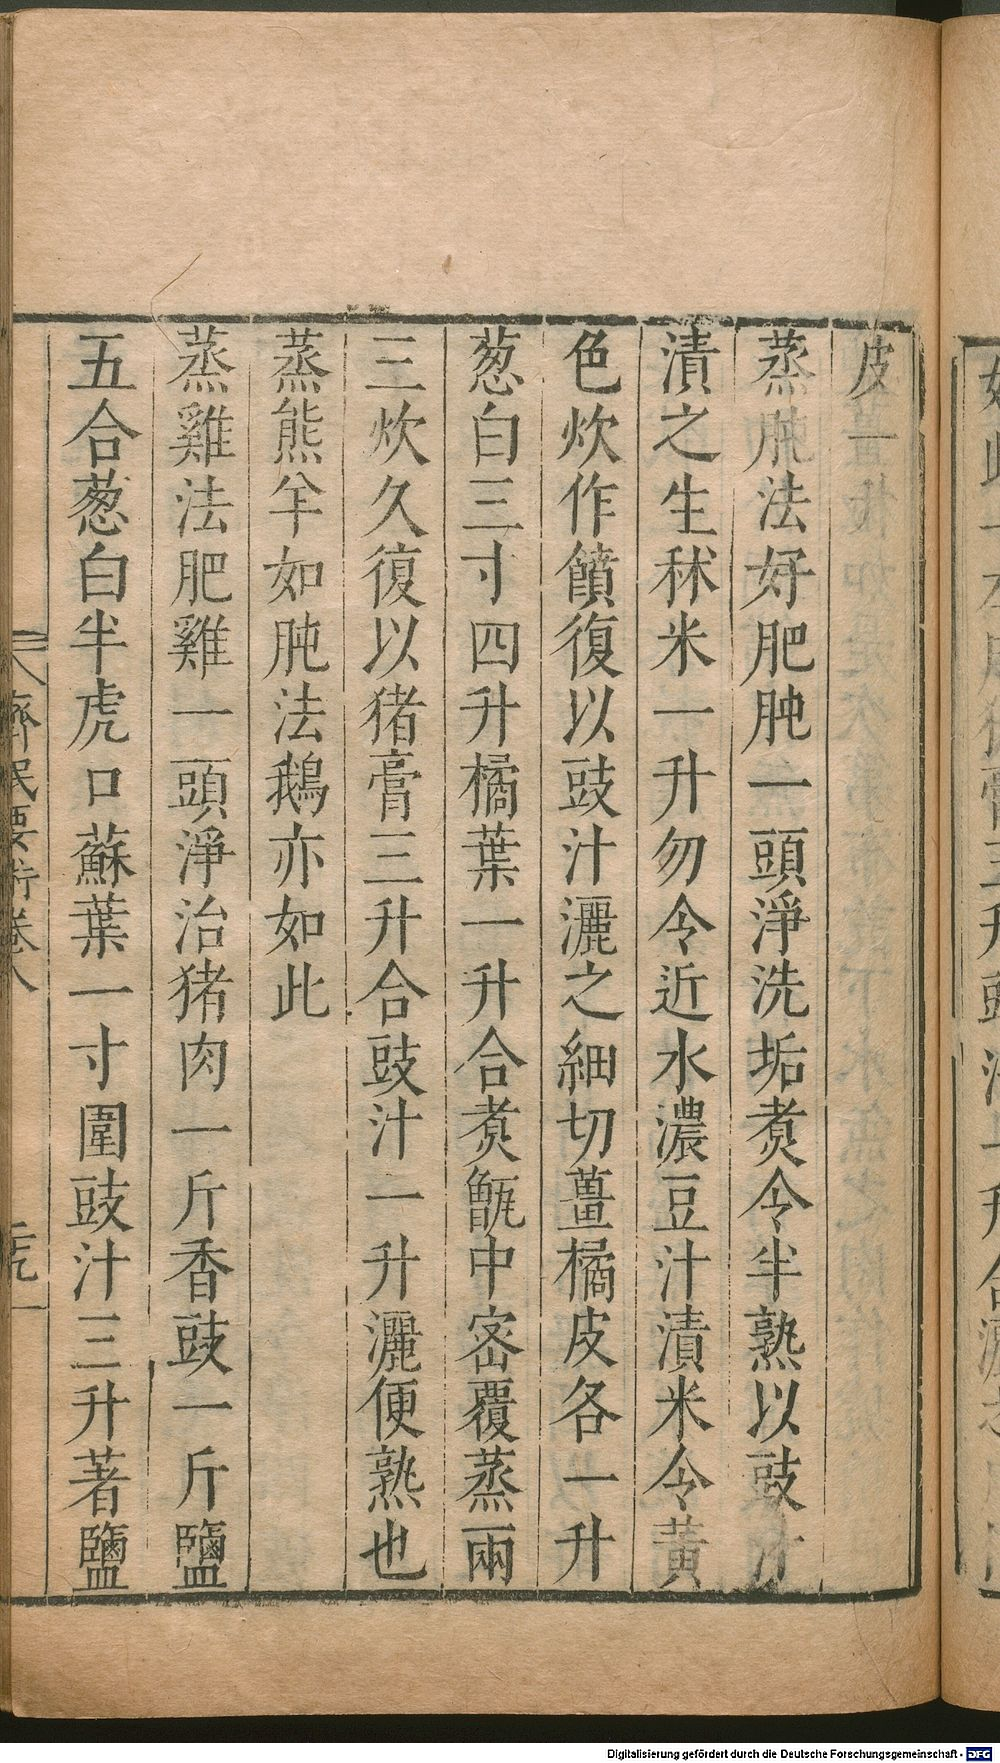 皮一
蒸肫法好肥肫一頭淨洗垢煑令半熟以豉汁
漬之生秫米一升勿令近水濃豆汁漬米令黄
色炊作饙復以豉汁灑之細切薑橘皮各一升
葱白三寸四升橘葉一升合煑甑中密覆蒸兩
三炊久復以猪膏三升合豉汁一升灑便熟也
蒸熊羊如肫法鵝亦如此
蒸雞法肥雞一頭淨治猪肉一斤香豉一斤鹽
五合葱白半虎口蘇葉一寸圍豉汁三升著鹽
齊民要術卷八
Digitalisierung gefördert durch die Deutsche Forschungsgemeinschaft - DFG